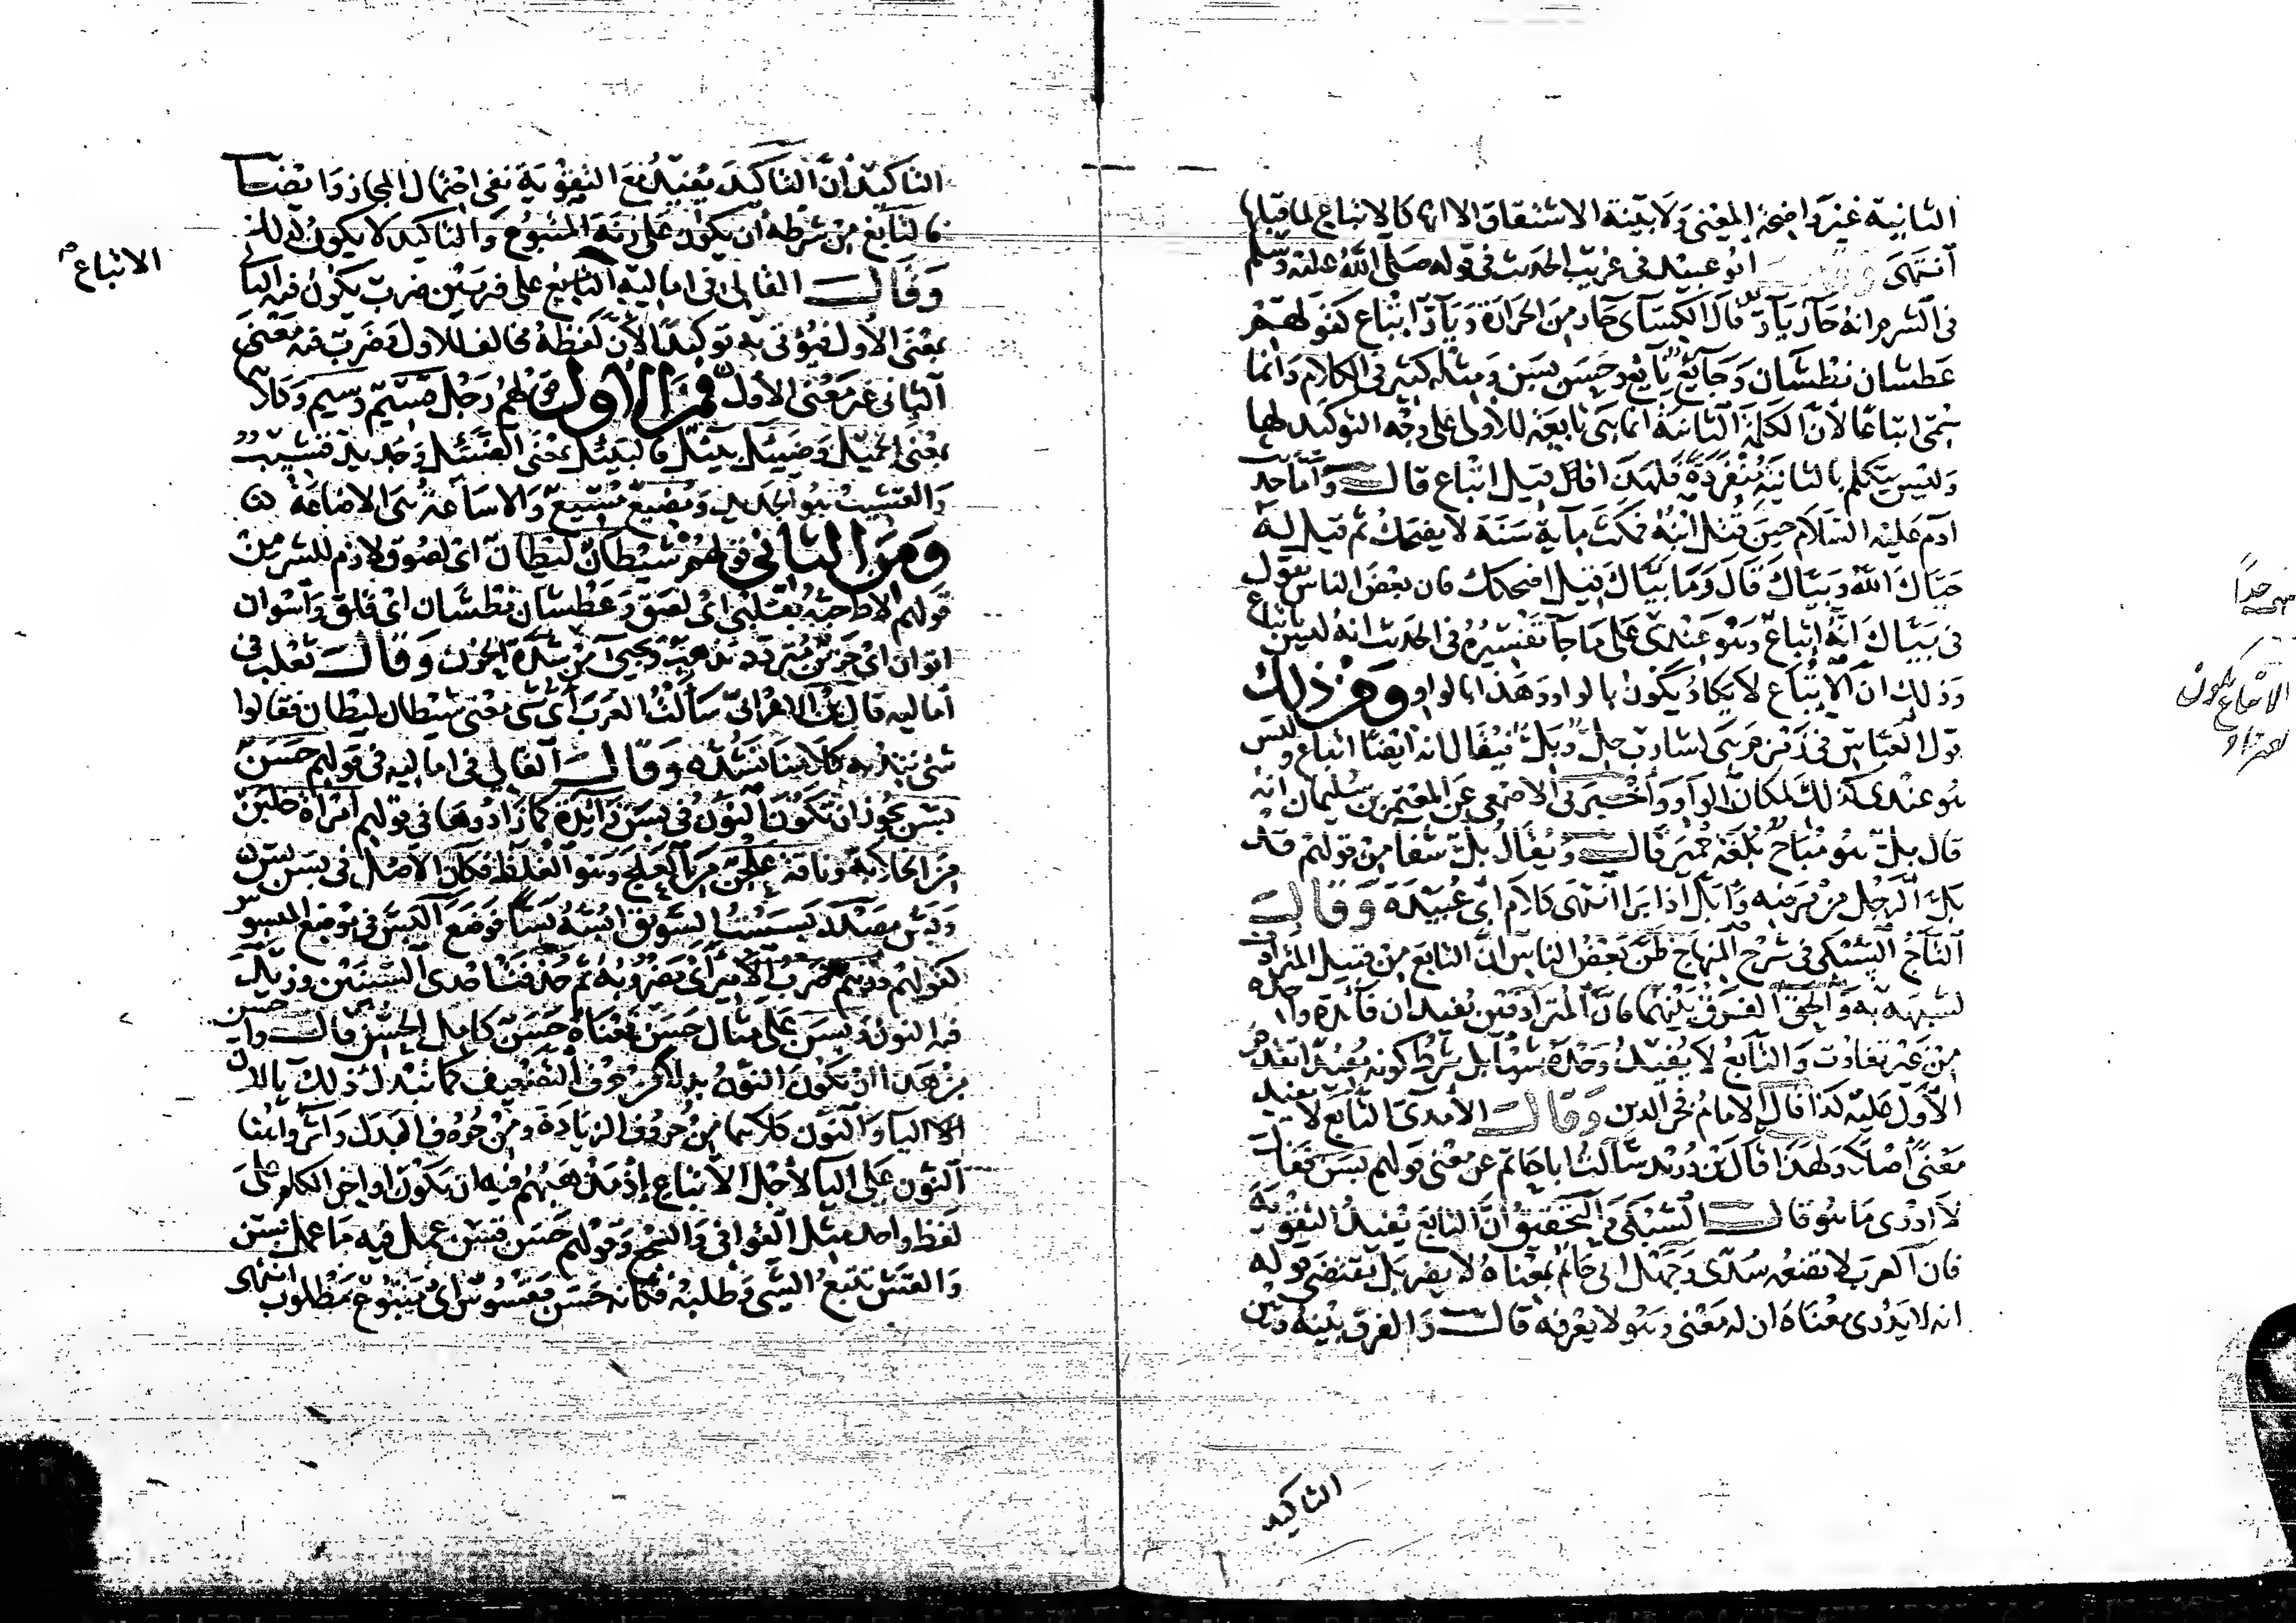 الثانية غير واضحة المعنى ولا بينة الاشتقاق الا انها كالاتباع لما قبلها
انتهى وقال ابو عبيد فى غريب الحديث فى قوله صلى الله عليه وسلم
فى الشبرم انه حار يار قال الكسآى حار من الحرارة ويار اتباع كقولهم
عطشان نطشان وجايع نايع وحسن بسن ومثله كثير فى الكلام وانما
سمى اتباعا لان الكلمة الثانية انما هى تابعة للاولى على وجه التوكيد لها
وليس يتكلم بالثانية منفردة فلهذا قيل اتباع قال واما حديث
ادم عليه السلام حين قتل ابنه فمكث ماية سنة لا يضحك ثم قيل له
حياك الله وبياك قال وما بياك قيل اضحكك فان بعض الناس يقول
فى بياك انه اتباع وهو عندى على ما جا تفسيره فى الحديث انه ليس باتباع
وذلك ان الاتباع لا يكاد يكون بالواو وهذا بالواو ومن ذلك
قول العباس فى زمزم هى لشارب حل وبل فيقال انه ايضا اتباع وليس
هو عندى كذلك لمكان الواو واخبرنى الاصمعى عن المعتمر بن سليمان انه
قال بل هو مباح بلغة حمير قال ويقال بل شفا من قولهم قد
بل الرجل من مرضه وابل اذا برا انتهى كلام ابى عبيدة وقال
التاج السبكى فى شرح المنهاج ظن بعض الناس ان التابع من قبيل المترادف
لشبهه به والحق الفرق بينهما فان المترادفين يفيدان فائدة واحدة
من غير تفاوت والتابع لا يفيد وحده شيا بل شرط كونه مفيدا تقدم
الاول عليه كذا قال الامام فخر الدين وقال الآمدى التابع لا يفيد
معنى اصلا ولهذا قال بن دريد سالت ابا حاتم عن معنى قولهم بسن فقال
لا ادرى ما هو قال السبكى والتحقيق ان التابع يفيد التقوية
فان العرب لا تضعه سدى وجهل ابى حاتم بمعناه لا يضر بل مقتضى قوله
انه لا يدرى معناه ان له معنى وهو لا يعرفه قال والفرق بينه وبين
التاكيد
جدا
الاتباع يكون
التاكيد ان التاكيد يفيد مع التقوية نفى احتمال المجاز وايضا
فالتابع من شرطه ان يكون على زنة المتبوع والتاكيد لا يكون كذلك
وقال القالى فى اماليه التابع على ضربين ضرب يكون فيه الثانى
بمعنى الاول فيؤتى به توكيدا لان لفظه مخالف للاول وضرب فيه معنى
الثانى غير معنى الاول فمن الاول قولهم رجل قسيم وسيم وكلاهما
بمعنى الجميل وضئيل بئيل فالبئيل بمعنى الضئيل وجديد قشيب
والقشيب هو الجديد ومضيع مسيع والاساعة هى الاضاعة
ومن الثانى قولهم شيطان ليطان اى لصوق لازم للشر من
قولهم لاط حبه بقلبى اى لصق وعطشان نطشان اى قلق واسوان
اتوان اى حزين متردد يذهب ويجى من شدة الحزن وقال ثعلب فى
اماليه قال بن الاعرابى سالت العرب اى شى معنى شيطان ليطان فقالوا
شى نتد به كلامنا نشده وقال القالى فى اماليه فى قولهم حسن
بسن يجوز ان تكون النون فى بسن زائدة كما زادوها فى قولهم امراة خلبن
من الخلابة وناقة علجن من العلج وهو الغلظ فكان الاصل فى بسن بس
وبس مصدر بسست السويق ابسه بسا فوضع البس فى موضع المبسوس
كقولهم درهم ضرب الامير اى مضروبه ثم حذفت احدى السينين وزيد
فيه النون وبنى على مثال حسن فمعناه حسن كامل الحسن قال واحسن
من هذا ان تكون النون بدلا من حرف التضعيف كما تبدل ذلك بالا
لان اليا والنون كلاهما من حروف الزيادة ومن حروف البدل واثروا هنا
النون على اليا لاجل الاتباع اذ مذهبهم فيه ان تكون اواخر الكلم على
لفظ واحد مثل القوافى والسجع وقولهم حسن قسن عمل فيه ما عمل ببسن
والقس تتبع الشى وطلبه فكانه حسن مقسوس اى متبوع مطلوب انتهى
الاتباع